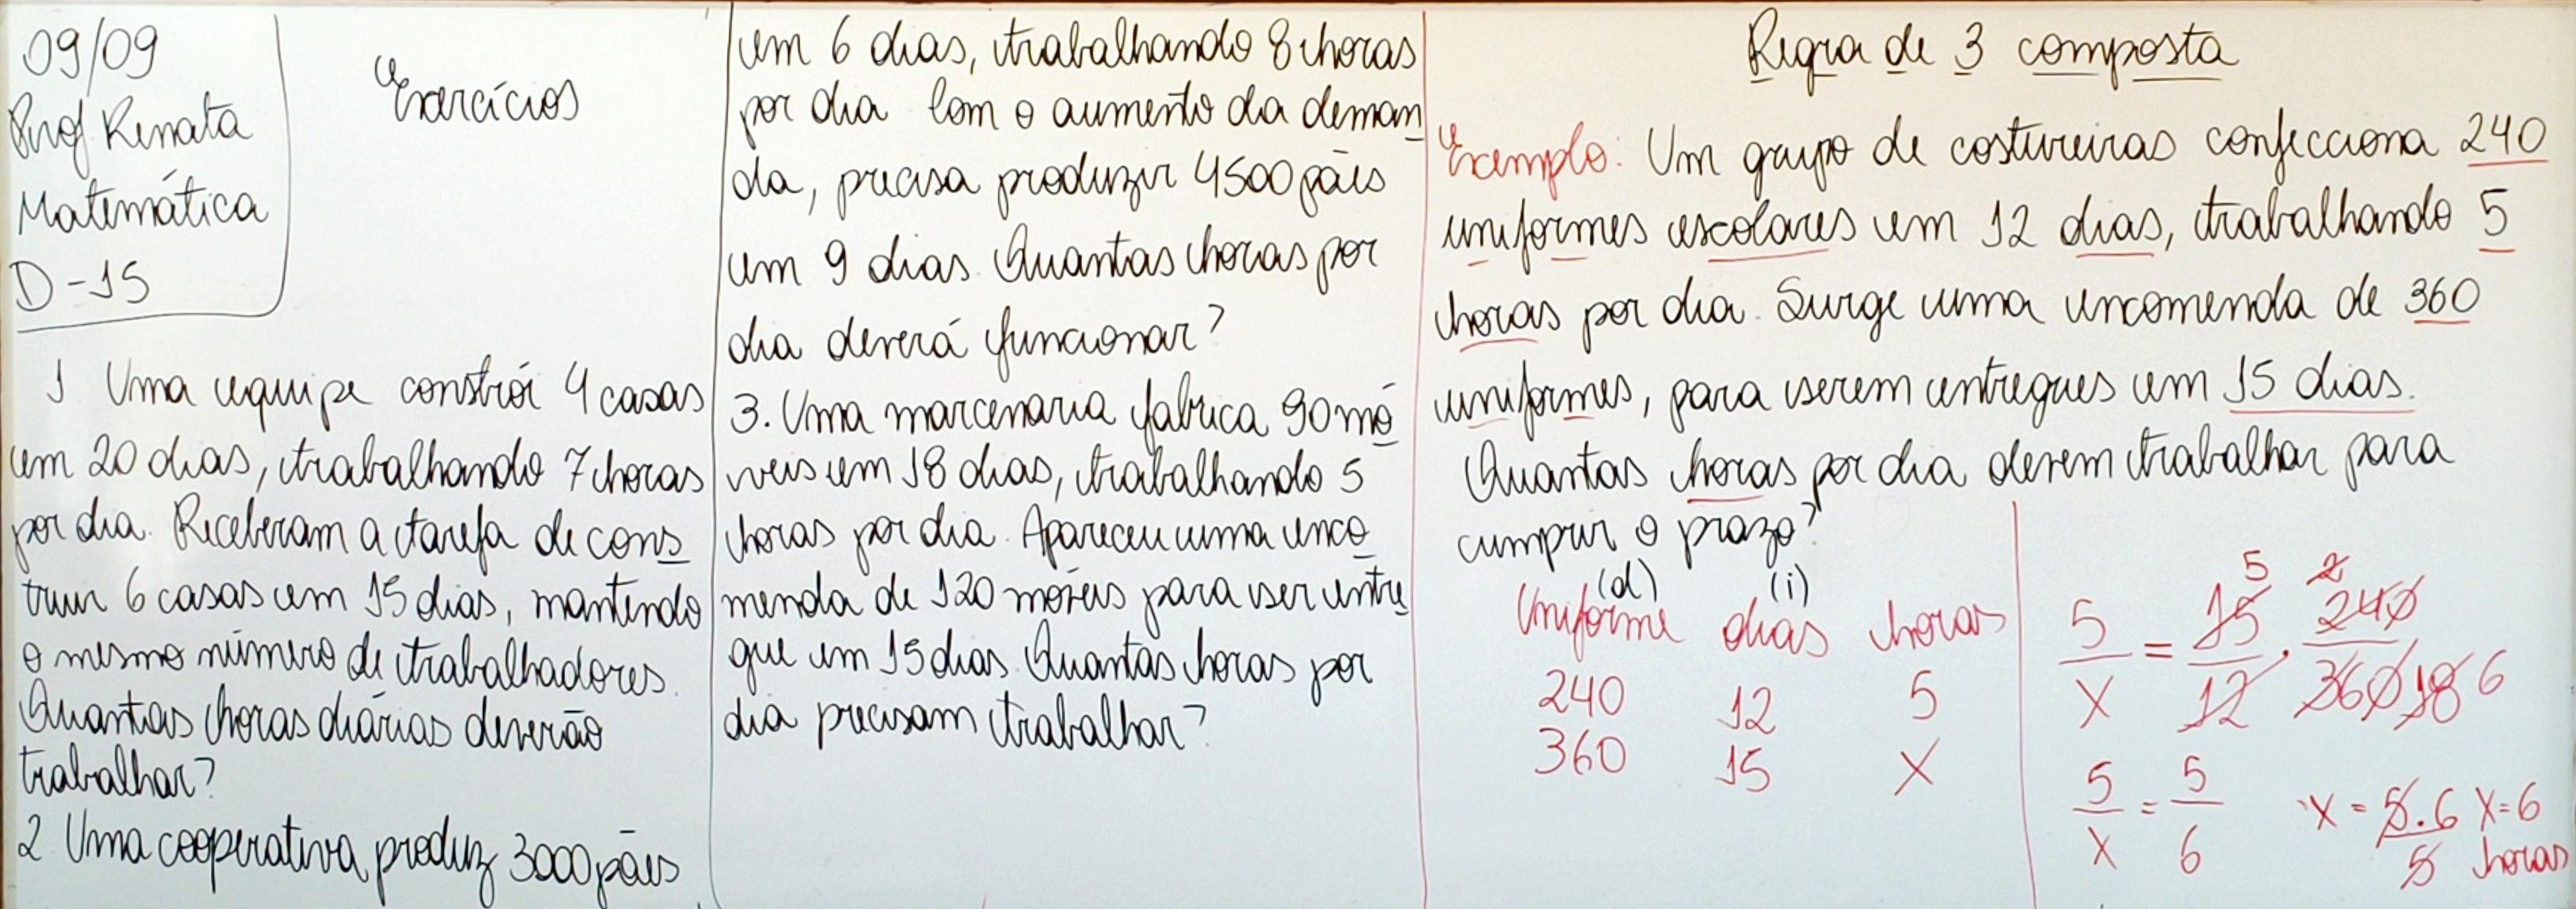 09/09
Prof Renata
Matemática
D-15
Exercícios
1 Uma equipe constrói 4 casas
em 20 dias, trabalhando 7 horas
por dia. Receberam a tarefa de cons
truir 6 casas em 15 dias, mantendo
o mesmo número de trabalhadores.
Quantas horas diárias deverão
trabalhar?
2 Uma cooperativa produz 3000 pães
em 6 dias, trabalhando 8 horas
por dia Com o aumento da deman
da, precisa produzir 4500 pães
em 9 dias. Quantas horas por
dia deverá funcionar?
3. Uma marcenaria fabrica 90 mó
veis em 18 dias, trabalhando 5
horas por dia. Apareceu uma enco
menda de 120 móveis para ser entre
gue em 15 dias. Quantas horas por
dia precisam trabalhar?
Regra de 3 composta
Exemplo: Um grupo de costureiras confecciona 240
uniformes escolares em 12 dias, trabalhando 5
horas por dia. Surge uma encomenda de 360
uniformes, para serem entregues em 15 dias.
Quantas horas por dia devem trabalhar para
cumprir o prazo?
(d) (i)
Uniforme dias horas
240 12 5
360 15 X
5 2
5/X = 15/12 . 240/360 18 6
5/X = 5/6 X = 5.6/5 X=6
horas